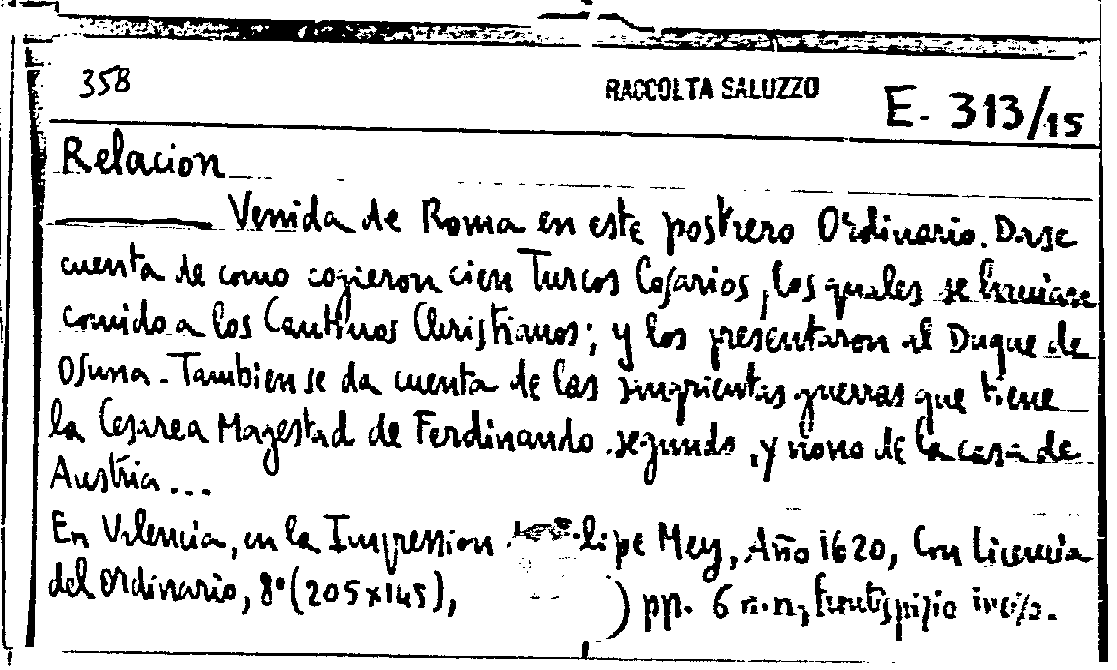 358
RACCOLTA SALUZZO
E. 313/15
Relacion
Venida de Roma en este postrero Ordinario. Dase
cuenta de como cogieron cien Turcos Cosarios, los quales se haviane
comido a los Cautivos Christianos; y los presentaron al Duque de
Osuna. Tambien se da cuenta de las sangrientas guerras que tiene
la Cesarea Magestad de Ferdinando segundo, y nono de la casa de
Austria...
En Valencia, en la Impression lipe Mey, Año 1620, Con licencia
del Ordinario, 8° (205x145), ) pp. 6 n.n, frontispizio inciso.